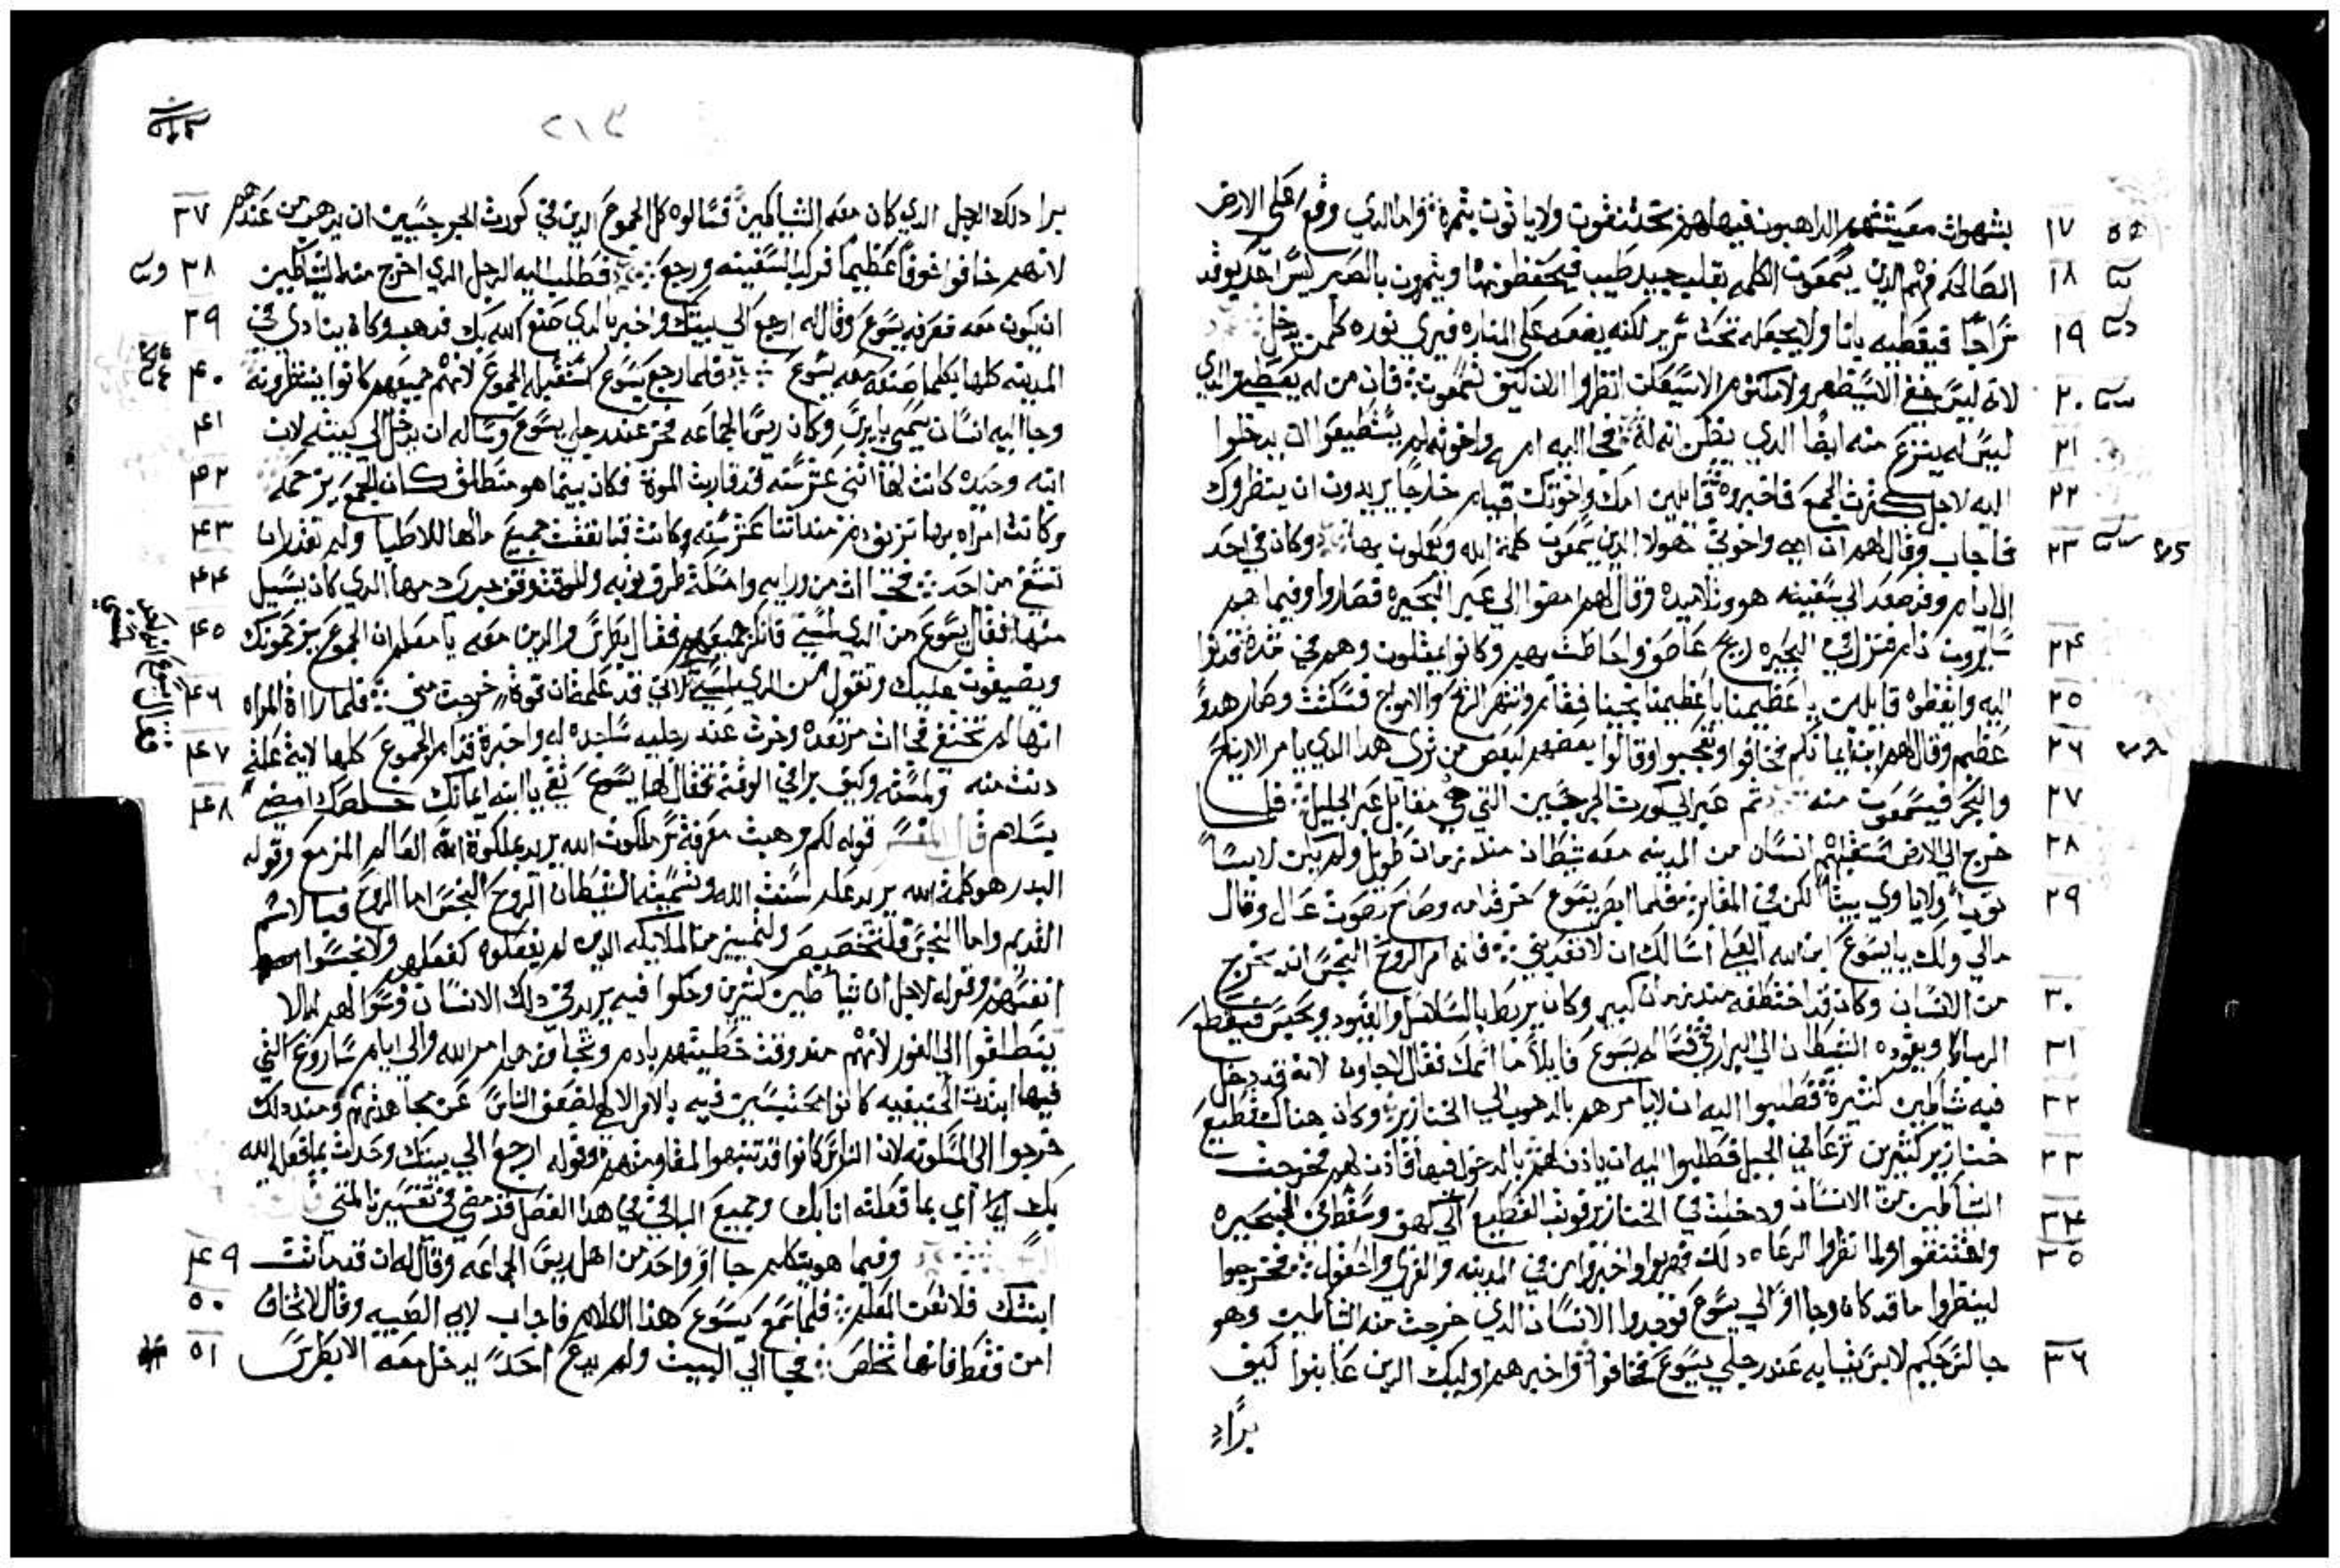 بشهوات معيشتهم الداهبون فيها لهذه تختنقون ولا ياتوت بثمرة واما الدي وقع علي الارض ١٧
الصالحه فهم الدين يسمعون الكلمه بقلب جيد طيب فيحفظونها ويثمرون بالصبر ليس احد يوقد ١٨
سراجا فيغطيه بانا ولا يجعله تحت سرير لكنه يضعه علي المناره فيري نوره كلمن يدخل ١٩
لانه ليس خفي الا سيظهر ولا مكتوم الا سيعلن انظروا الان كيف تسمعون فان من له يعطي والدي ٢٠
ليس له ينزع منه ايضا الدي يظن انه له فجا اليه امه واخوته ولم يستطيعوا ان يدخلوا ٢١
اليه لاجل كثرت الجمع فاخبروه قايلين امك واخوتك قيام خارجا يريدون ان ينظروك ٢٢
فاجاب وقال لهم ان امي واخوتي هولا الدين يسمعون كلمة الله ويعملون بها وكان في احد ٢٣
الايام وقد صعد الي سفينه هو وتلاميده وقال لهم امضوا الي عبر البحيره فصاروا وفيما هم
سايرون نام فنزل في البحيره ريح عاصف واحاطت بهم وكانوا يمتلون وهم في شدة فدنوا ٢٤
اليه وايقظوه قايلين يا عظيمنا يا عظيمنا نجينا فقام وانتهر الريح والامواج فسكنت وصار هدوا ٢٥
عظيم وقال لهم اين ايمانكم فخافوا وتعجبوا وقالوا بعضهم لبعض من تري هدا الدي يامر الارياح ٢٦
والبحر فيسمعون منه ثم عبر الي كورت الجرجسين التي هي مقابل عبر الجليل فلما ٢٧
خرج الي الارض استقبلهم انسان من المدينه معه شيطان مند زمان طويل ولم يكن لابسا ٢٨
ثوبا ولا ياوي بيتا لكن في المقابر فلما ابصر يسوع خر قدامه وصاح بصوت عال وقال ٢٩
مالي ولك يا يسوع ابن الله العلي اسالك ان لا تعدبني فانه امر الروح النجس ان يخرج
من الانسان وكان قد اختطفه مند زمان كبير وكان يربط بالسلاسل والقيود ويحبس فيقطع ٣٠
الرباط ويقوده الشيطان الي البراري فساله يسوع قايلا ما اسمك فقال لاجاون لانه قد دخل ٣١
فيه شياطين كثيرة فطلبوا اليه ان لا يامرهم بالدهوب الي وكان هناك قطيع ٣٢
خنازير كثيرين ترعا في الجبل فطلبوا اليه ان يادن لهم بالدخول فيها فادن لهم فخرجت ٣٣
الشياطين من الانسان ودخلت في الخنازير فوثب القطيع الي وسقط في البحيره ٣٤
واختنقوا ولما نظروا الرعاه دلك هربوا واخبروا من في المدينه والقري والحقول فخرجوا ٣٥
لينظروا ما قد كان وجااوا الي يسوع فوجدوا الانسان الدي خرجت منه الشياطين وهو
جالس حكيم لابس ثيابه عند رجلي يسوع فخافوا واخبرهم اوليك الدين عاينوا كيف ٣٦
برا
٢١٣
برا دلك الرجل الدي كان معه الشياطين فسالوه كل الجموع الدين في كورت الجرجسيين ان يدهب من عندهم ٣٧
لانهم خافوا خوفا عظيما فركب السفينه ورجع فطلب اليه الرجل الدي اخرج منه الشياطين ٣٨
ان يكون معه فصرفه يسوع وقال له ارجع الي بيتك واخبر بالدي صنع الله بك فدهب وكان ينادي في ٣٩
المدينه كلها بكلما صنعه معه يسوع فلما رجع يسوع استقبله الجموع لانهم جميعهم كانوا ينتظرونه ٤٠
وجا اليه انسان يسمي يايرس وكان ريس الجماعه فخر عند رجلي يسوع وساله ان يدخل الي بيته لان ٤١
ابنه وحيده كانت لها اثني عشر سنه قد قاربت الموة فكان بينما هو منطلق كان الجمع يزحمه ٤٢
وكانت امراه بها نزيف دم مند اثنا عشر سنه وكانت قد انفقت جميع مالها للاطبا ولم تقدر ان ٤٣
تشفي من احد فجات من ورايه وامسكت طرف ثوبه وللوقت وقف جري دمها الدي كان يسيل ٤٤
منها فقال يسوع من الدي لمسني فانكر جميعهم فقال بطرس والدين معه يا معلم ان الجموع يزحمونك ٤٥
ويضيقون عليك وتقول من الدي لمسني لاني قد علمت ان قوة خرجت مني فلما راة المراه ٤٦
انها لم تختفي جات مرتعده وخرت عند رجليه ساجده له واخبرة قدام الجموع كلها لاية علة ٤٧
دنت منه ولمسته وكيف برات في الوقت فقال لها يسوع ثقي يا ابنه ايمانك خلصك امضي ٤٨
بسلام قال المفسر قوله لكم وهبت معرفة سر ملكوت الله يريد بملكوة الله العالم المزمع وقوله
البدر هو كلمة الله يريد علم سنت الله وتسميته الشيطان الروح النجس اما الروح فبالاسم
القديم واما النجس فلتخصيص ولتمييز من الملايكه الدين لم يفعلوا كفعلهم ولا نجسوا
انفسهم وقوله لاجل ان شياطين كثيرين دخلوا فيه يريد في دلك الانسان لهم الا
ينطلقوا الي الغور لانهم مند وقت خطيتهم بادم وتجاوزهم امر الله والي ايام ساروغ التي
فيها ابتدت الحنيفيه كانوا محتبسين فيه بالامر الالهي لضعف الناس عن مجاهدتهم ومند دلك
خرجوا الي المسكونه لان الناس كانوا قد تنبهوا لمقاومتهم وقوله ارجع الي بيتك وحدث بما فعل الله
بك اي بما فعلته انا بك وجميع الباقي في هدا الفصل قد مضي في تفسير المتي
وفيما هو يتكلم جا واحد من اهل ريس الجماعه وقال له ان قد ماتت ٤٩
ابنتك فلا تعن المعلم فلما سمع يسوع هذا الكلام فاجاب لابي الصبيه وقال لا تخاف ٥٠
امن فقط فانها تخلص فجا الي البيت ولم يدع احدا يدخل معه الا بطرس ٥١